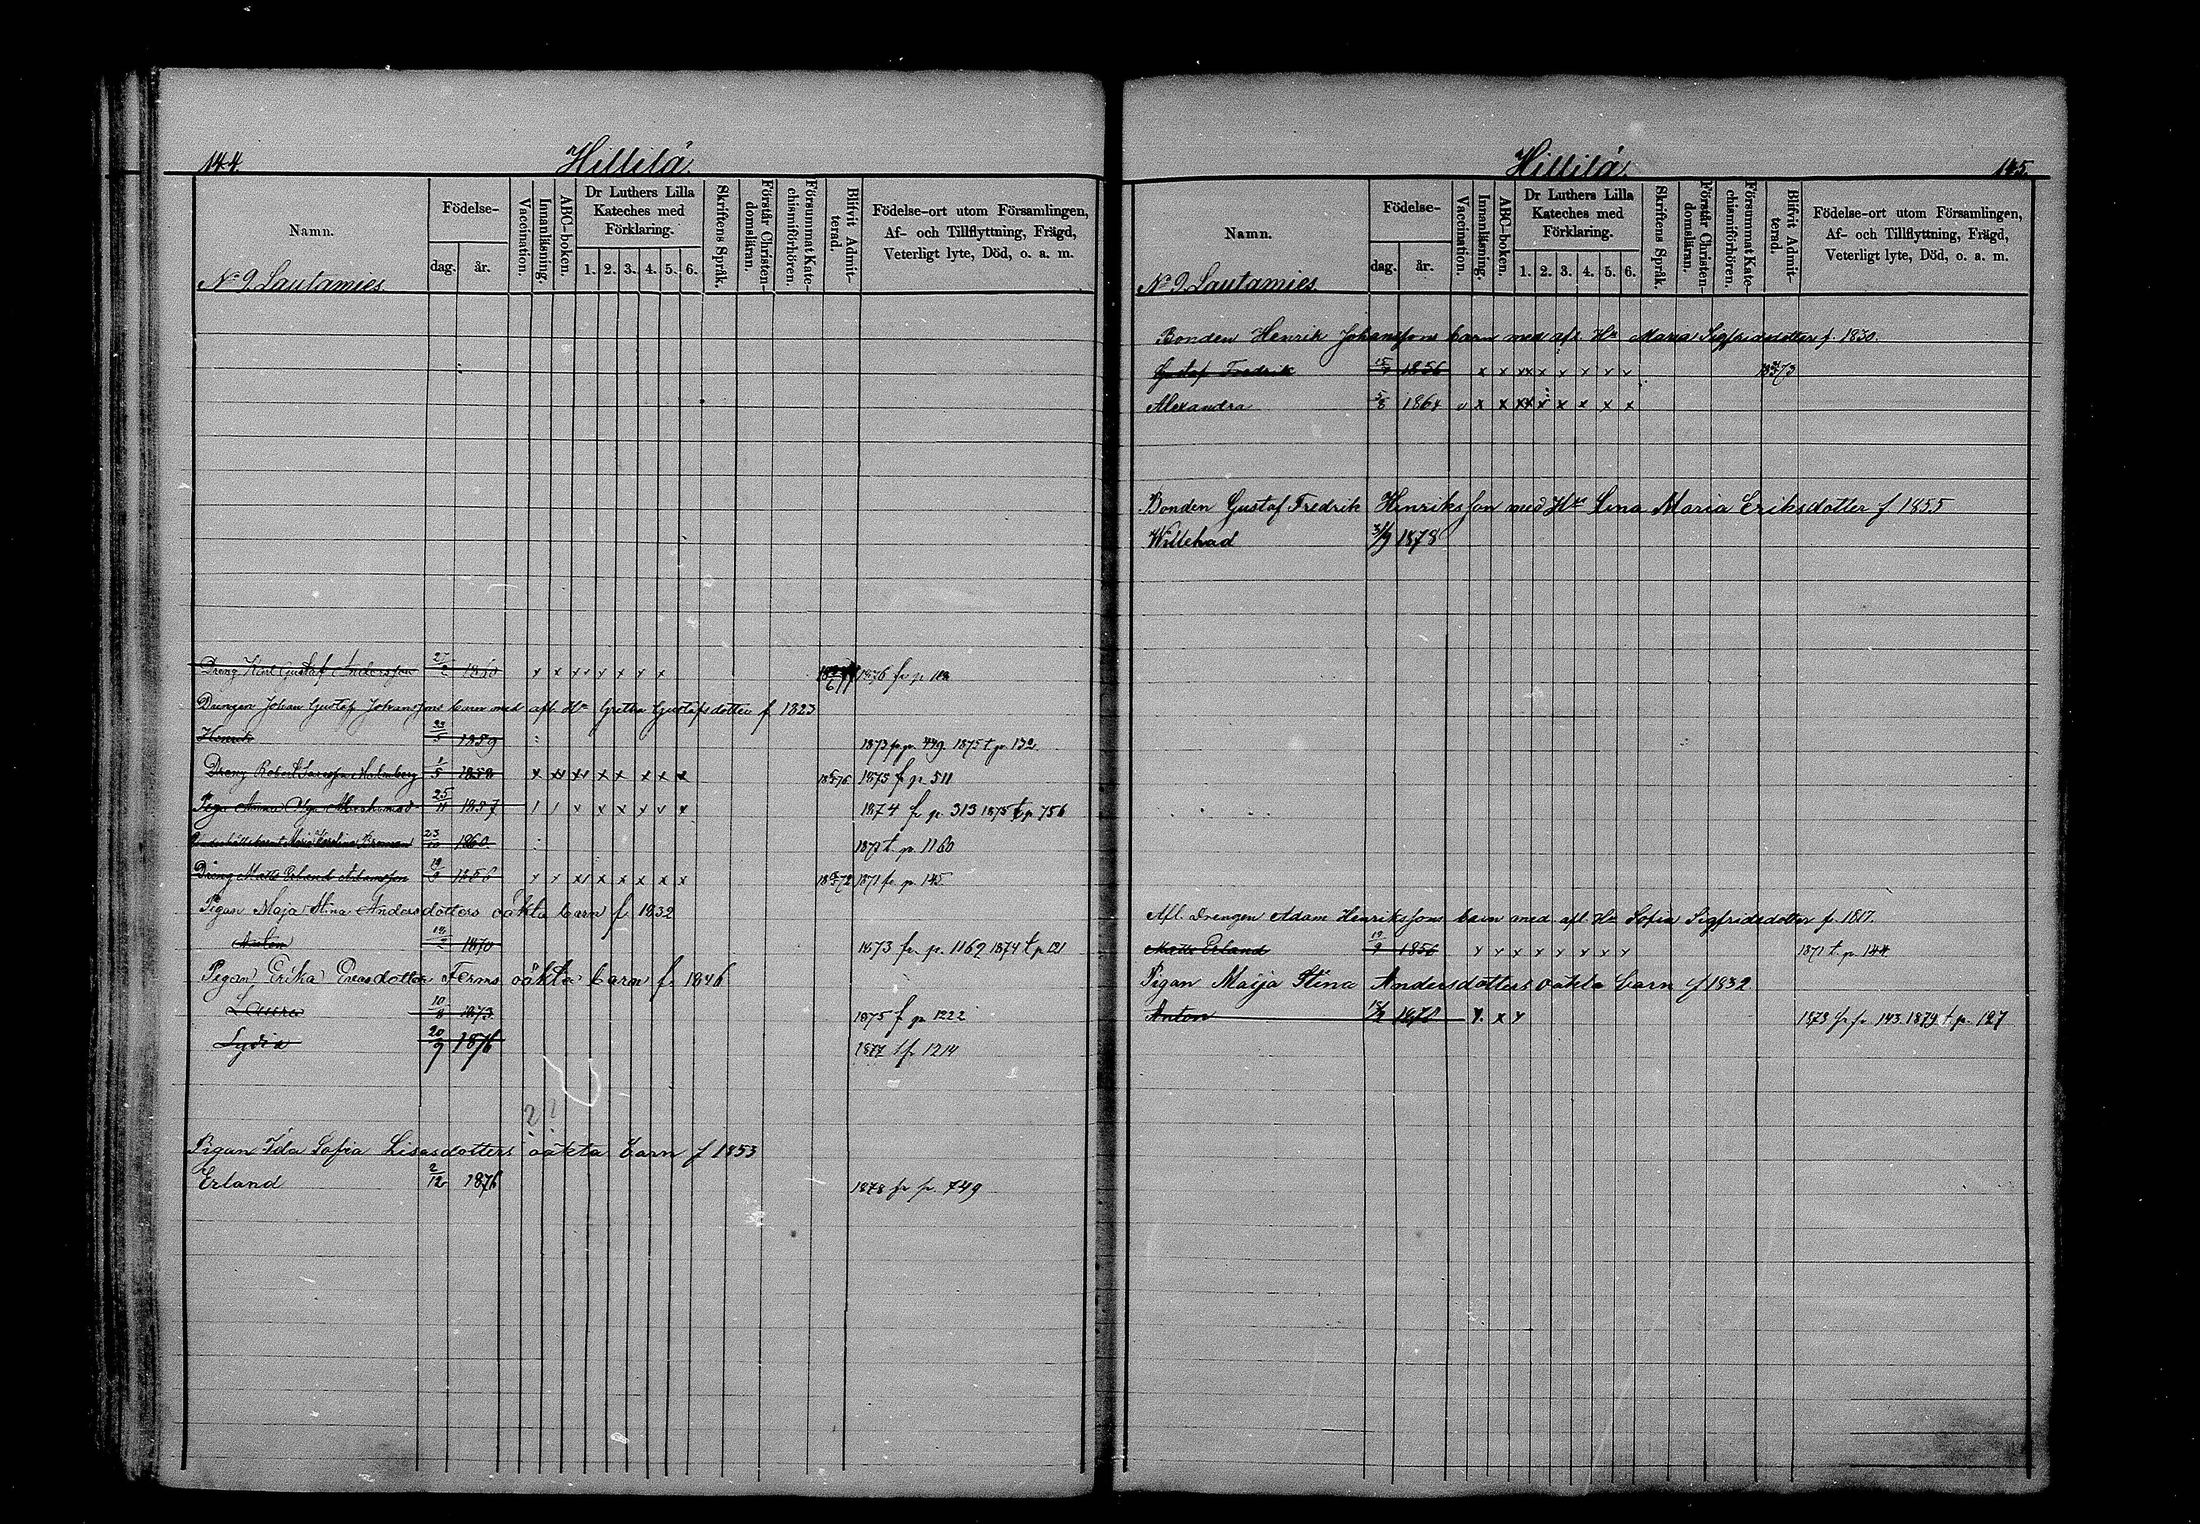 144.
Hillilä.
Namn.
Födelse-
dag. år.
Vaccination.
Innanläsning.
ABC-boken.
Dr Luthers Lilla
Kateches med
Förklaring.
1. 2. 3. 4. 5. 6.
Skriftens Språk.
Förstår Christen-
domsläran.
Försummat Kate-
chismiförhören.
Blifvit Admit-
terad.
Födelse-ort utom Församlingen,
Af- och Tillflyttning, Frägd,
Veterligt lyte, Död, o. a. m.
No 9 Lautamies
Dreng Karl Gustaf Andersson 27/2 1860 x x xx x x x x x 1876 fr p
Drengen Johan Gustaf Johanssons barn med afl. Hu Gretha Gustafsdotter f 1823
Henrik 23/5 1859 1873 fr p. 449. 1875 t p. 132.
Dreng Robert Malmberg 1/5 1858 x xx xx x x x x x 1875 fr p 511
Piga Anna 25/11 1857 / / x x x x x x 1874 fr p. 313 1875 t p 756
Maria Karolina 23/10 1860. t. p. 1160
Dreng Matts Erland Adamsson 19/9 1856 x x xx x x x x x 1871 fr p. 145
Pigan Maja Stina Andersdotters oäkta barn f. 1832
Anton 1870 1873 fr. p. 1162 1874 t p 121
Pigan Erika Ferms oäkta barn f. 1846
Laura 10/8 1873 1875 f p. 1222
Lydia 20/9 1876 1877 t p 1214
??
Pigan Ida Sofia Lisasdotters oäkta barn f 1853
Erland 2/12 1876 1878 fr p. 749
Hillilä.
145.
Namn.
Födelse-
dag. år.
Vaccination.
Innanläsning.
ABC-boken.
Dr Luthers Lilla
Kateches med
Förklaring.
1. 2. 3. 4. 5. 6.
Skriftens Språk.
Förstår Christen-
domsläran.
Försummat Kate-
chismiförhören.
Blifvit Admit-
terad.
Födelse-ort utom Församlingen,
Af- och Tillflyttning, Frägd,
Veterligt lyte, Död, o. a. m.
No 9 Lautamies
Bonden Henrik Johanssons barn med afl. Hu Maria Sigfridsdotter f. 1830.
Gustaf Fredrik 1856 x x xx x x x x x
Alexandra 5/8 1864 v x x xx x x x x x
Bonden Gustaf Fredrik Henriksson med Hu Lena Maria Eriksdotter f 1855
Willehad 3/9 1878
Afl. Drengen Adam Henrikssons barn med afl. Hu Sofia Sigfridsdotter f. 1817.
Matts Erland 19/9 1856 x x x x x x x x 1871 t. p. 144
Pigan Maija Stina Andersdotters oäkta barn f 1832
Anton 1870 x. x x 1873 fr p. 143. 1879 t p. 127